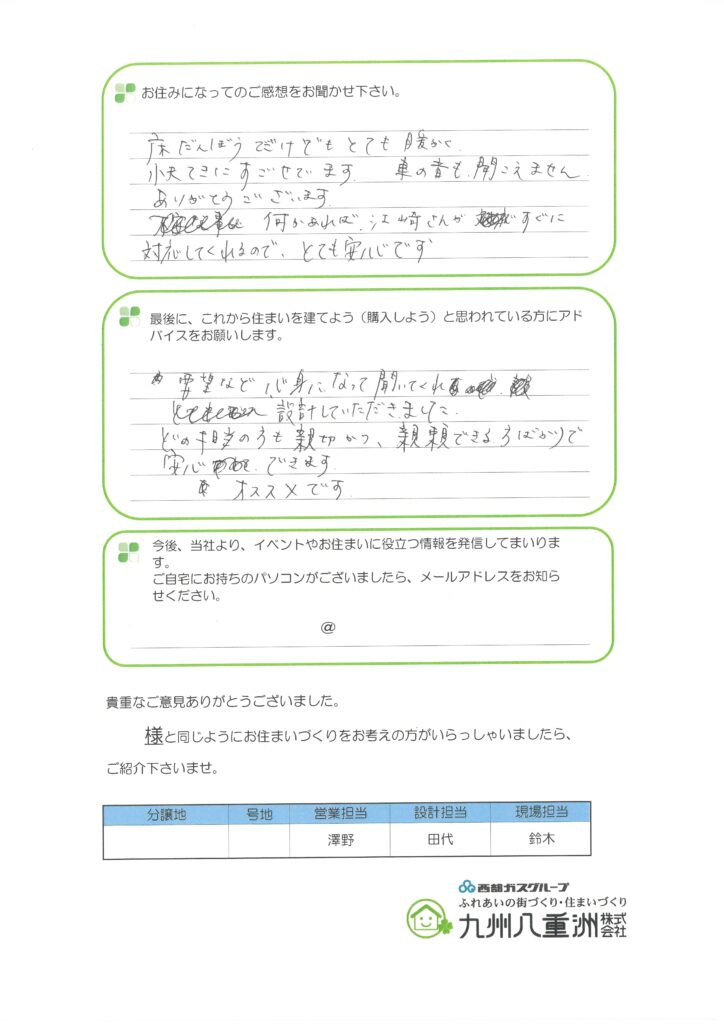 お住みになってのご感想をお聞かせ下さい。
床だんぼうだけでもとても暖かく
すごせています。 車の音も、聞こえません。
ありがとうございます。
何かあれば、江崎さんが すぐに
対応してくれるので、とても安心です
最後に、これから住まいを建てよう（購入しよう）と思われている方にアド
バイスをお願いします。
要望など、心身になって聞いてくれ
設計していただきました。
どの担当の方も親切かつ、親頼できる方ばかりで
安心 できます。
オススメです。
今後、当社より、イベントやお住まいに役立つ情報を発信してまいりま
す。
ご自宅にお持ちのパソコンがございましたら、メールアドレスをお知ら
せください。
@
貴重なご意見ありがとうございました。
様と同じようにお住まいづくりをお考えの方がいらっしゃいましたら、
ご紹介下さいませ。
分譲地 号地 営業担当 設計担当 現場担当
澤野 田代 鈴木
西部ガスグループ
ふれあいの街づくり・住まいづくり
九州八重洲株式会社